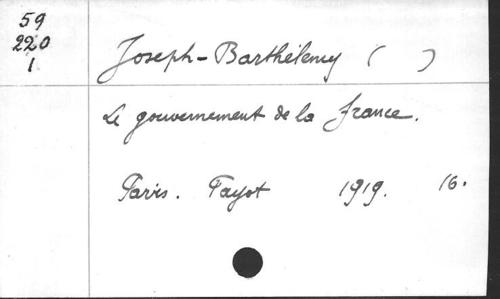 59
220
1
Joseph-Barthélemy ( )
Le gouvernement de la France.
Paris. Payot 1919. 16.